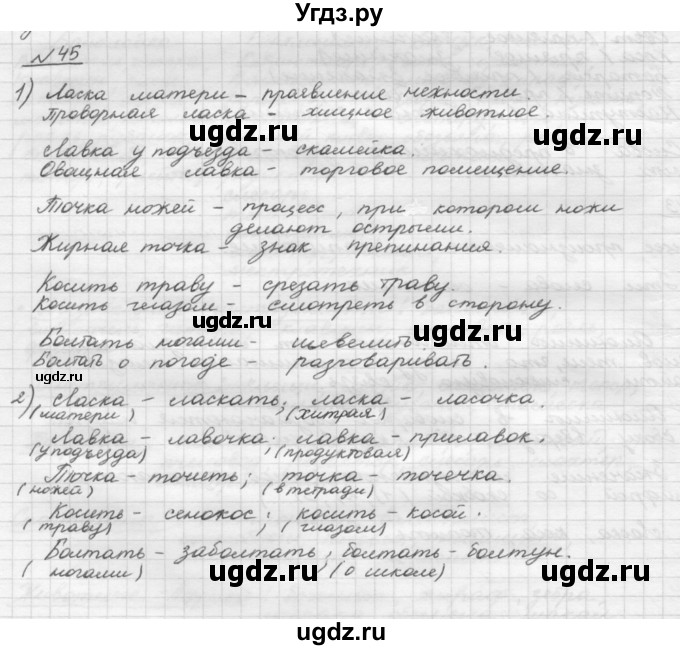 Угдз.ру
№45
1) Ласка матери – проявление нежности.
Проворная ласка – хищное животное.
ugdz.ru ugdz.ru
Лавка у подъезда – скамейка.
Овощная лавка – торговое помещение.
Точка ножей – процесс, при котором ножи
делают острыми.
Жирная точка – знак препинания.
ugdz.ru
Косить траву – срезать траву.
Косить глазом – смотреть в сторону.
ugdz.ru ugdz.ru
Болтать ногами – шевелить.
Болтать о погоде – разговаривать.
ugdz.ru
2) Ласка – ласкать; ласка – ласочка.
(матери) (хитрая)
ugdz.ru
Лавка – лавочка; лавка – прилавок.
(у подъезда) (продуктовая)
Точка – точить; точка – точечка.
(ножей) (в тетради)
ugdz.ru
Косить – сенокос; косить – косой.
(траву) (глазом)
Болтать – заболтать; болтать – болтун.
(ногами) (о школе)
ugdz.ru ugdz.ru
ugdz.ru